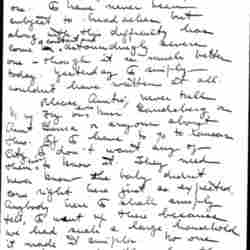 one. I have never been
subject to headaches but
along with this difficulty has
come a
astoundingly severe
one - though it is much better
today. Yesterday I simply
couldn't have written at all.
Please, Auntie, never tell
or anyone about
this. If I have to go to Kansas
City I don't want any of
them to know it. They need
never know the baby didn't
come right here just as expected.
Anybody here I shall simply
tell, I went up there because
we had such a large household
it made it simpler for me.